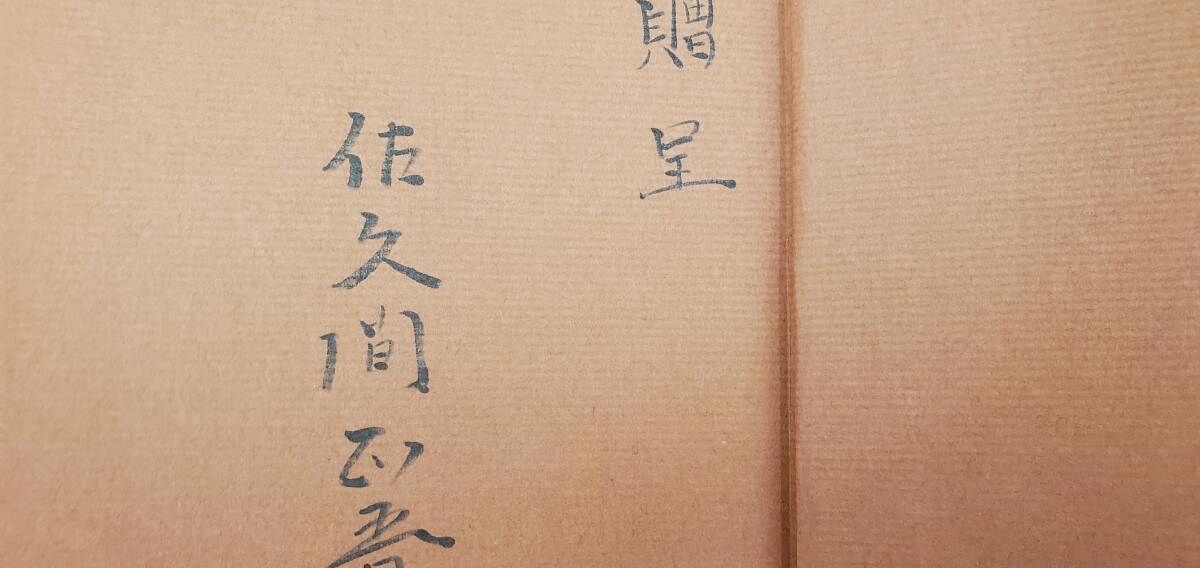 贈呈
佐久間正